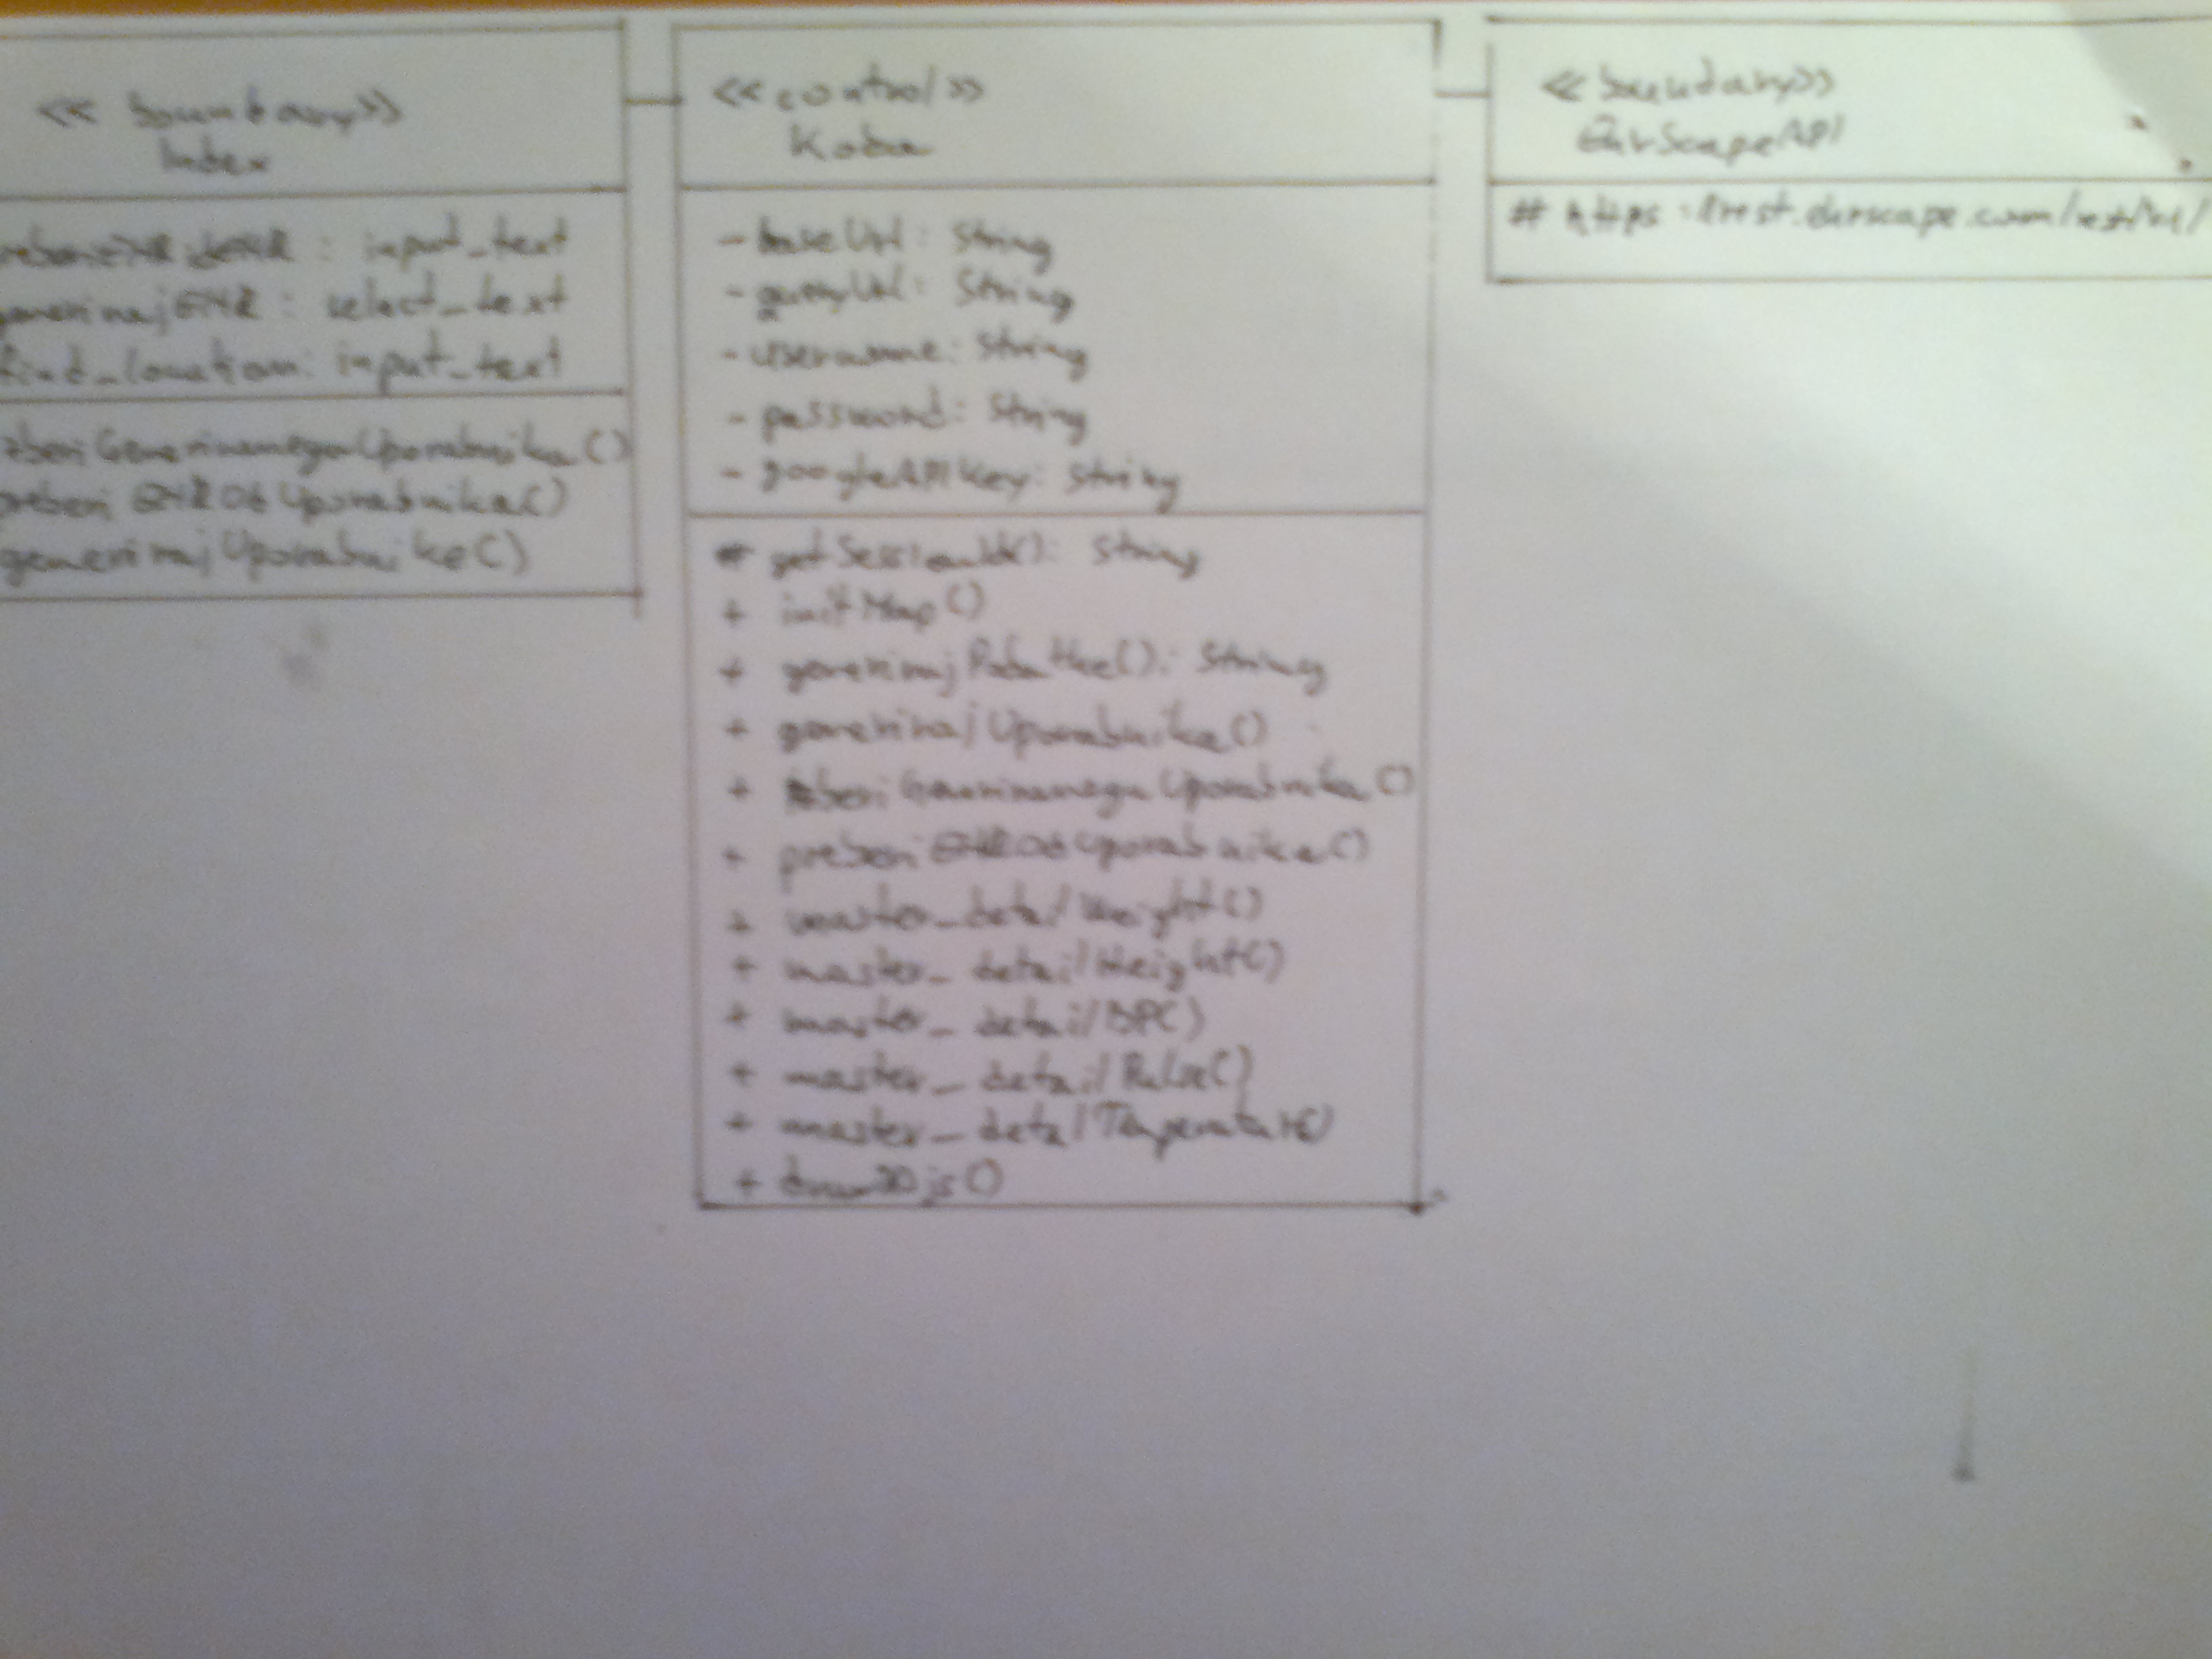 << boundary >>
Index
: input_text
generirajEHR : select_text
find_location: input_text
izberiGeneriranegaUporabnika()
preberiEHROdUporabnika()
generirajUporabnike()
<<control>>
Koda
- baseUrl: String
- queryUrl: String
- username: String
- password: String
- googleAPIKey: String
# getSessionId(): String
+ initMap()
+ generirajPodatke(): String
+ generirajUporabnike()
+ izberiGeneriranegaUporabnika()
+ preberiEHROdUporabnika()
+ master_detailWeight()
+ master_detailHeight()
+ master_detailBP()
+ master_detailPulse()
+ master_detailTemperature()
+ drawD3js()
<<boundary>>
EhrScapeAPI
# https://rest.ehrscape.com/rest/v1/